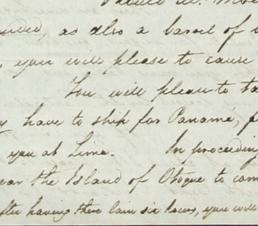 as also a barrel of
you will please to cause
You will please to
have to ship for Panamá,
you at Lima. In proceeding
the Island of Otoque to
after having there lain six hours, you will